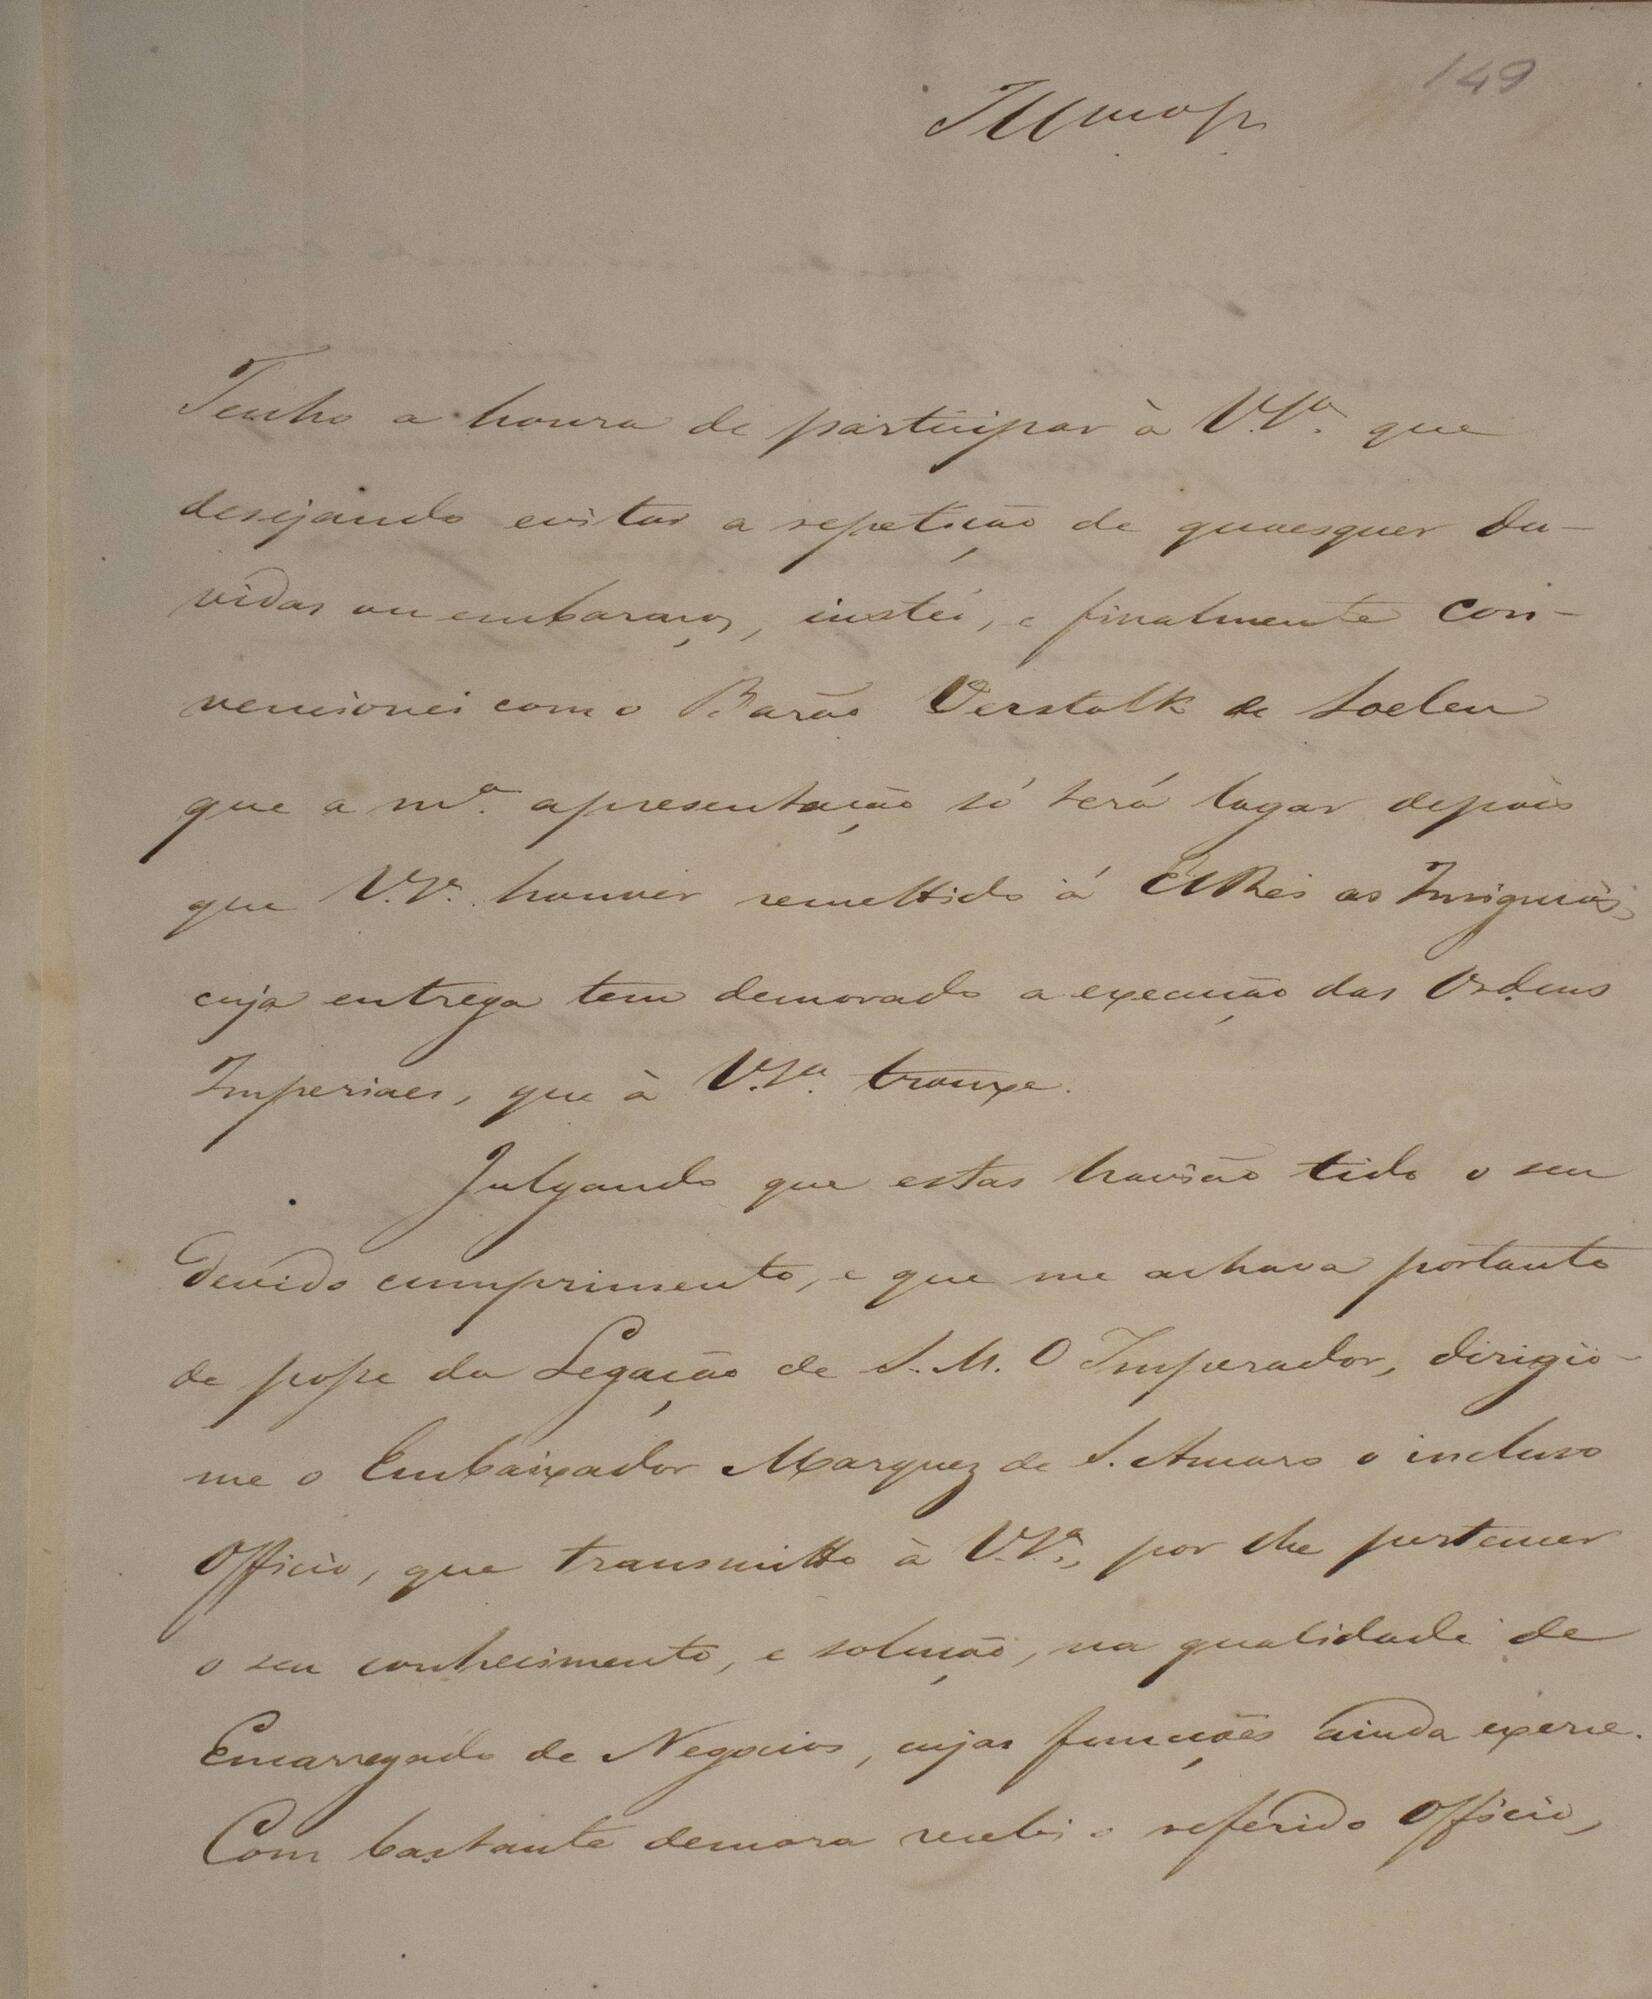 149
Illmo Sr.
Tenho a honra de participar à V.Sª. que
desejando evitar a repetição de quaesquer du-
vidas ou embaraços, instei, e finalmente con-
vencionei com o Barão Verstolk de Soelen
que a mª. apresentação só terá lugar depois
que V.Sª. houver remettido á ElRei as Insignias,
cuja entrega tem demorado a execução das Ordens
Imperiaes, que à V.Sª. trouxe.
Julgando que estas havião tido o seu
devido cumprimento, e que me achava portanto
de posse da Legação de S. M. O Imperador, dirigio-
me o Embaixador Marquez de S. Amaro o incluso
Officio, que transmitto à V.Sª., por lhe pertencer
o seu conhecimento, e solução, na qualidade de
Encarregado de Negocios, cujas funcções ainda exerce.
Com bastante demora recebi o referido Officio,